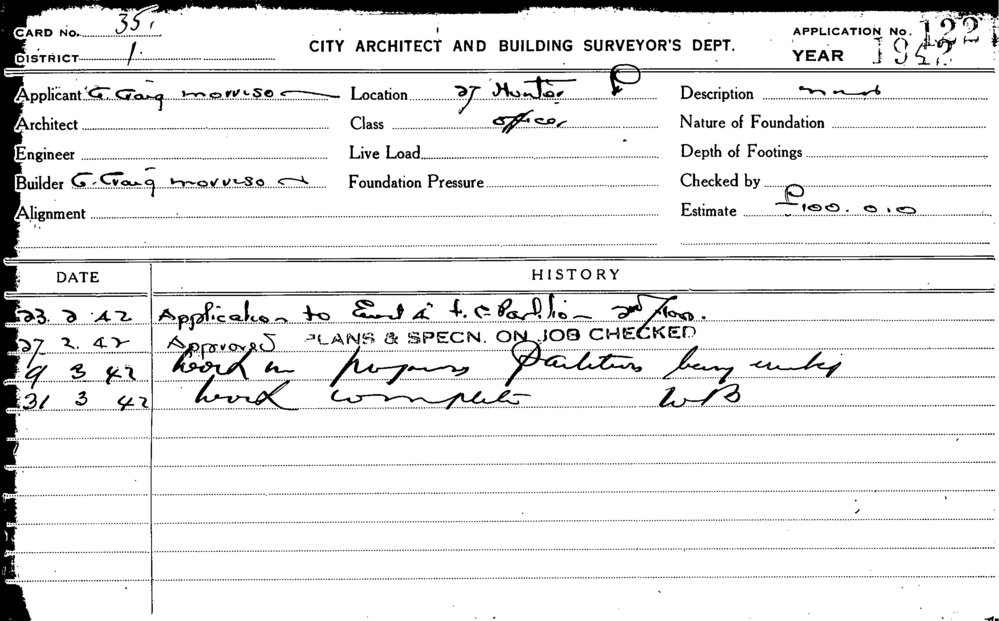 CARD No. 35.
DISTRICT 1.
CITY ARCHITECT AND BUILDING SURVEYOR'S DEPT.
APPLICATION No. 122
YEAR 1942
Applicant G. Craig Morrison Location 27 Hunter Description
Architect Class offices Nature of Foundation
Engineer Live Load Depth of Footings
Builder G. Craig Morrison Foundation Pressure Checked by
Alignment Estimate £100.0.0
DATE HISTORY
23.2.42 Application to Erect Partition 2nd floor.
27.2.42 Approved PLANS & SPECN. ON JOB CHECKED
9 3 42 Work in progress Partitions being
31 3 42 Work complete WB